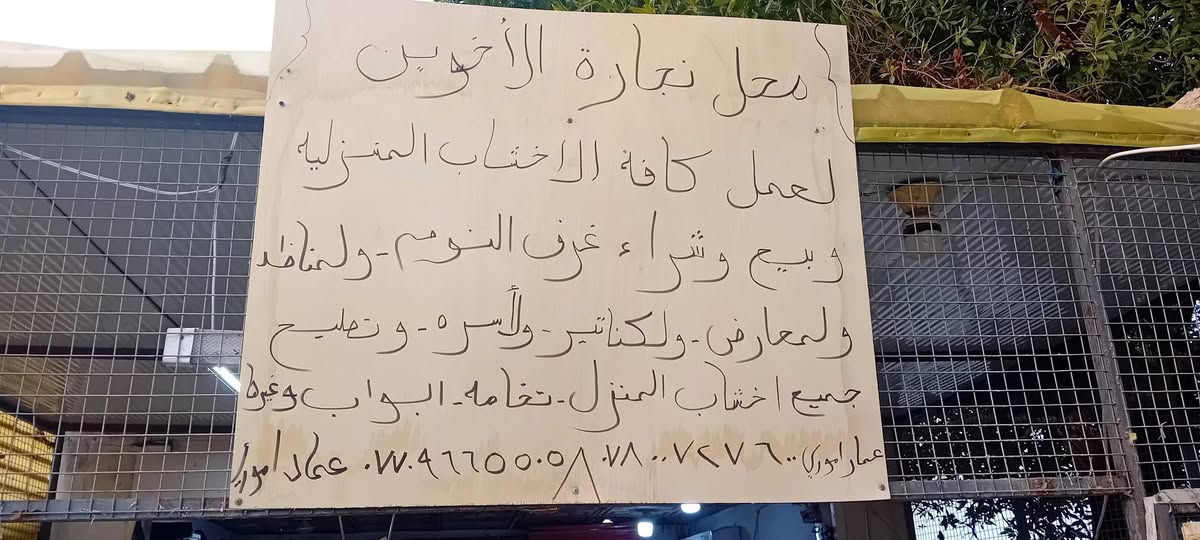 محل نجارة الأخوين
لعمل كافة الأخشاب المنزليه
وبيع وشراء غرف النوم - ولمناضد
ولمعارض - ولكناتير - ولأسره - وتصليح
جميع اخشاب المنزل - تخامه - البواب وغيرها
عمار اموري ٠٧٨٠٠٧٢٧٦٠٠ ٠٧٧٠٩٦٦٥٥٠٥٨ عماد